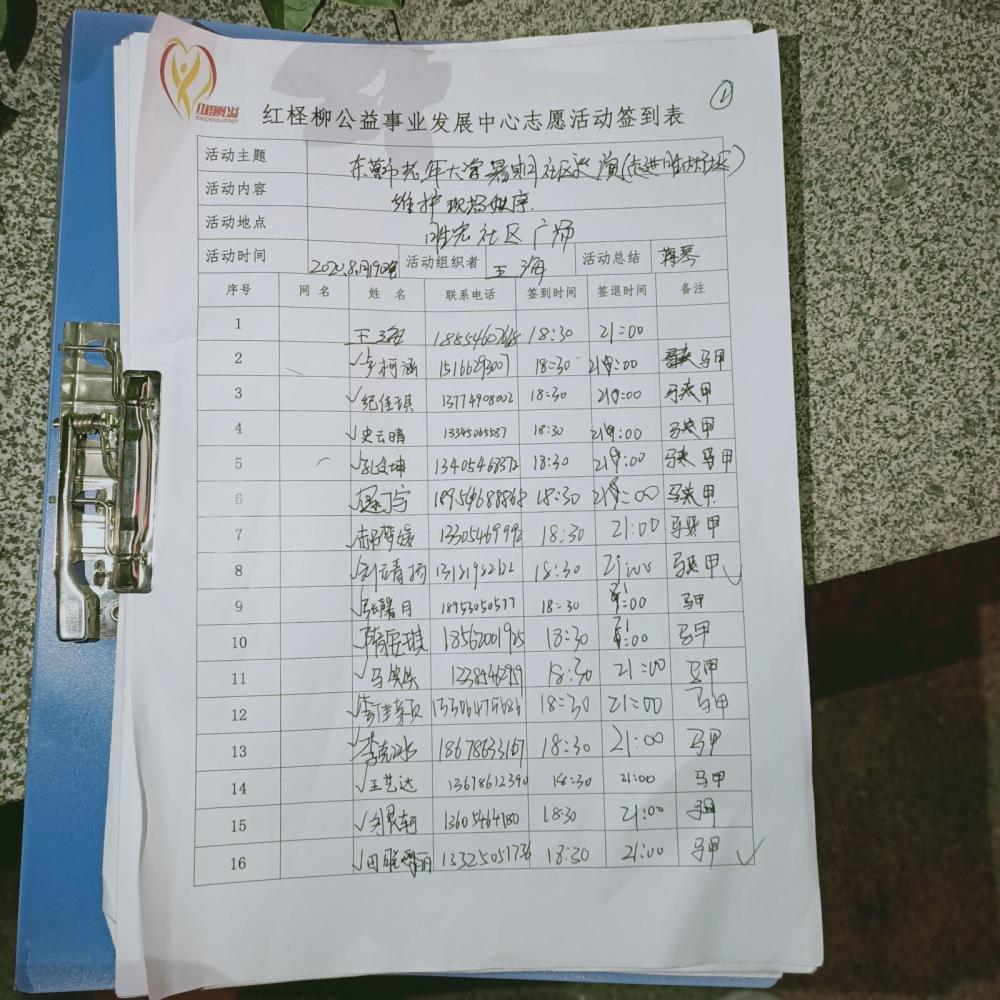 红柽柳公益
①
红柽柳公益事业发展中心志愿活动签到表
活动主题 东营市老年大学暑期社区巡演(走进胜宏社区)
活动内容 维护现场秩序.
活动地点 胜宏社区广场
活动时间 2020.8.月19日 活动组织者 王海 活动总结 蒋琴
序号 网名 姓名 联系电话 签到时间 签退时间 备注
1 王海 18:30 21:00
2 卢柯涵 18:30 21:00 马甲
3 纪佳琪 13774908002 18:30 21:00 马夹甲
4 史云晴 13345065587 18:30 21:00 马夹甲
5 13405468372 18:30 21:00 马夹 马甲
6 18954688868 18:30 21:00 马夹甲
7 13305469992 18:30 21:00 马夹甲
8 18:30 21:00 马夹甲
9 张馨月 18953050577 18:30 21:00 马甲
10 18562001925 18:30 21:00 马甲
11 18:30 21:00 马甲
12 18:30 21:00 马甲
13 李克冰 18678633167 18:30 21:00 马甲
14 王艺达 13678612390 18:30 21:00 马甲
15 13605464780 18:30 21:00 马甲
16 13325051736 18:30 21:00 马甲